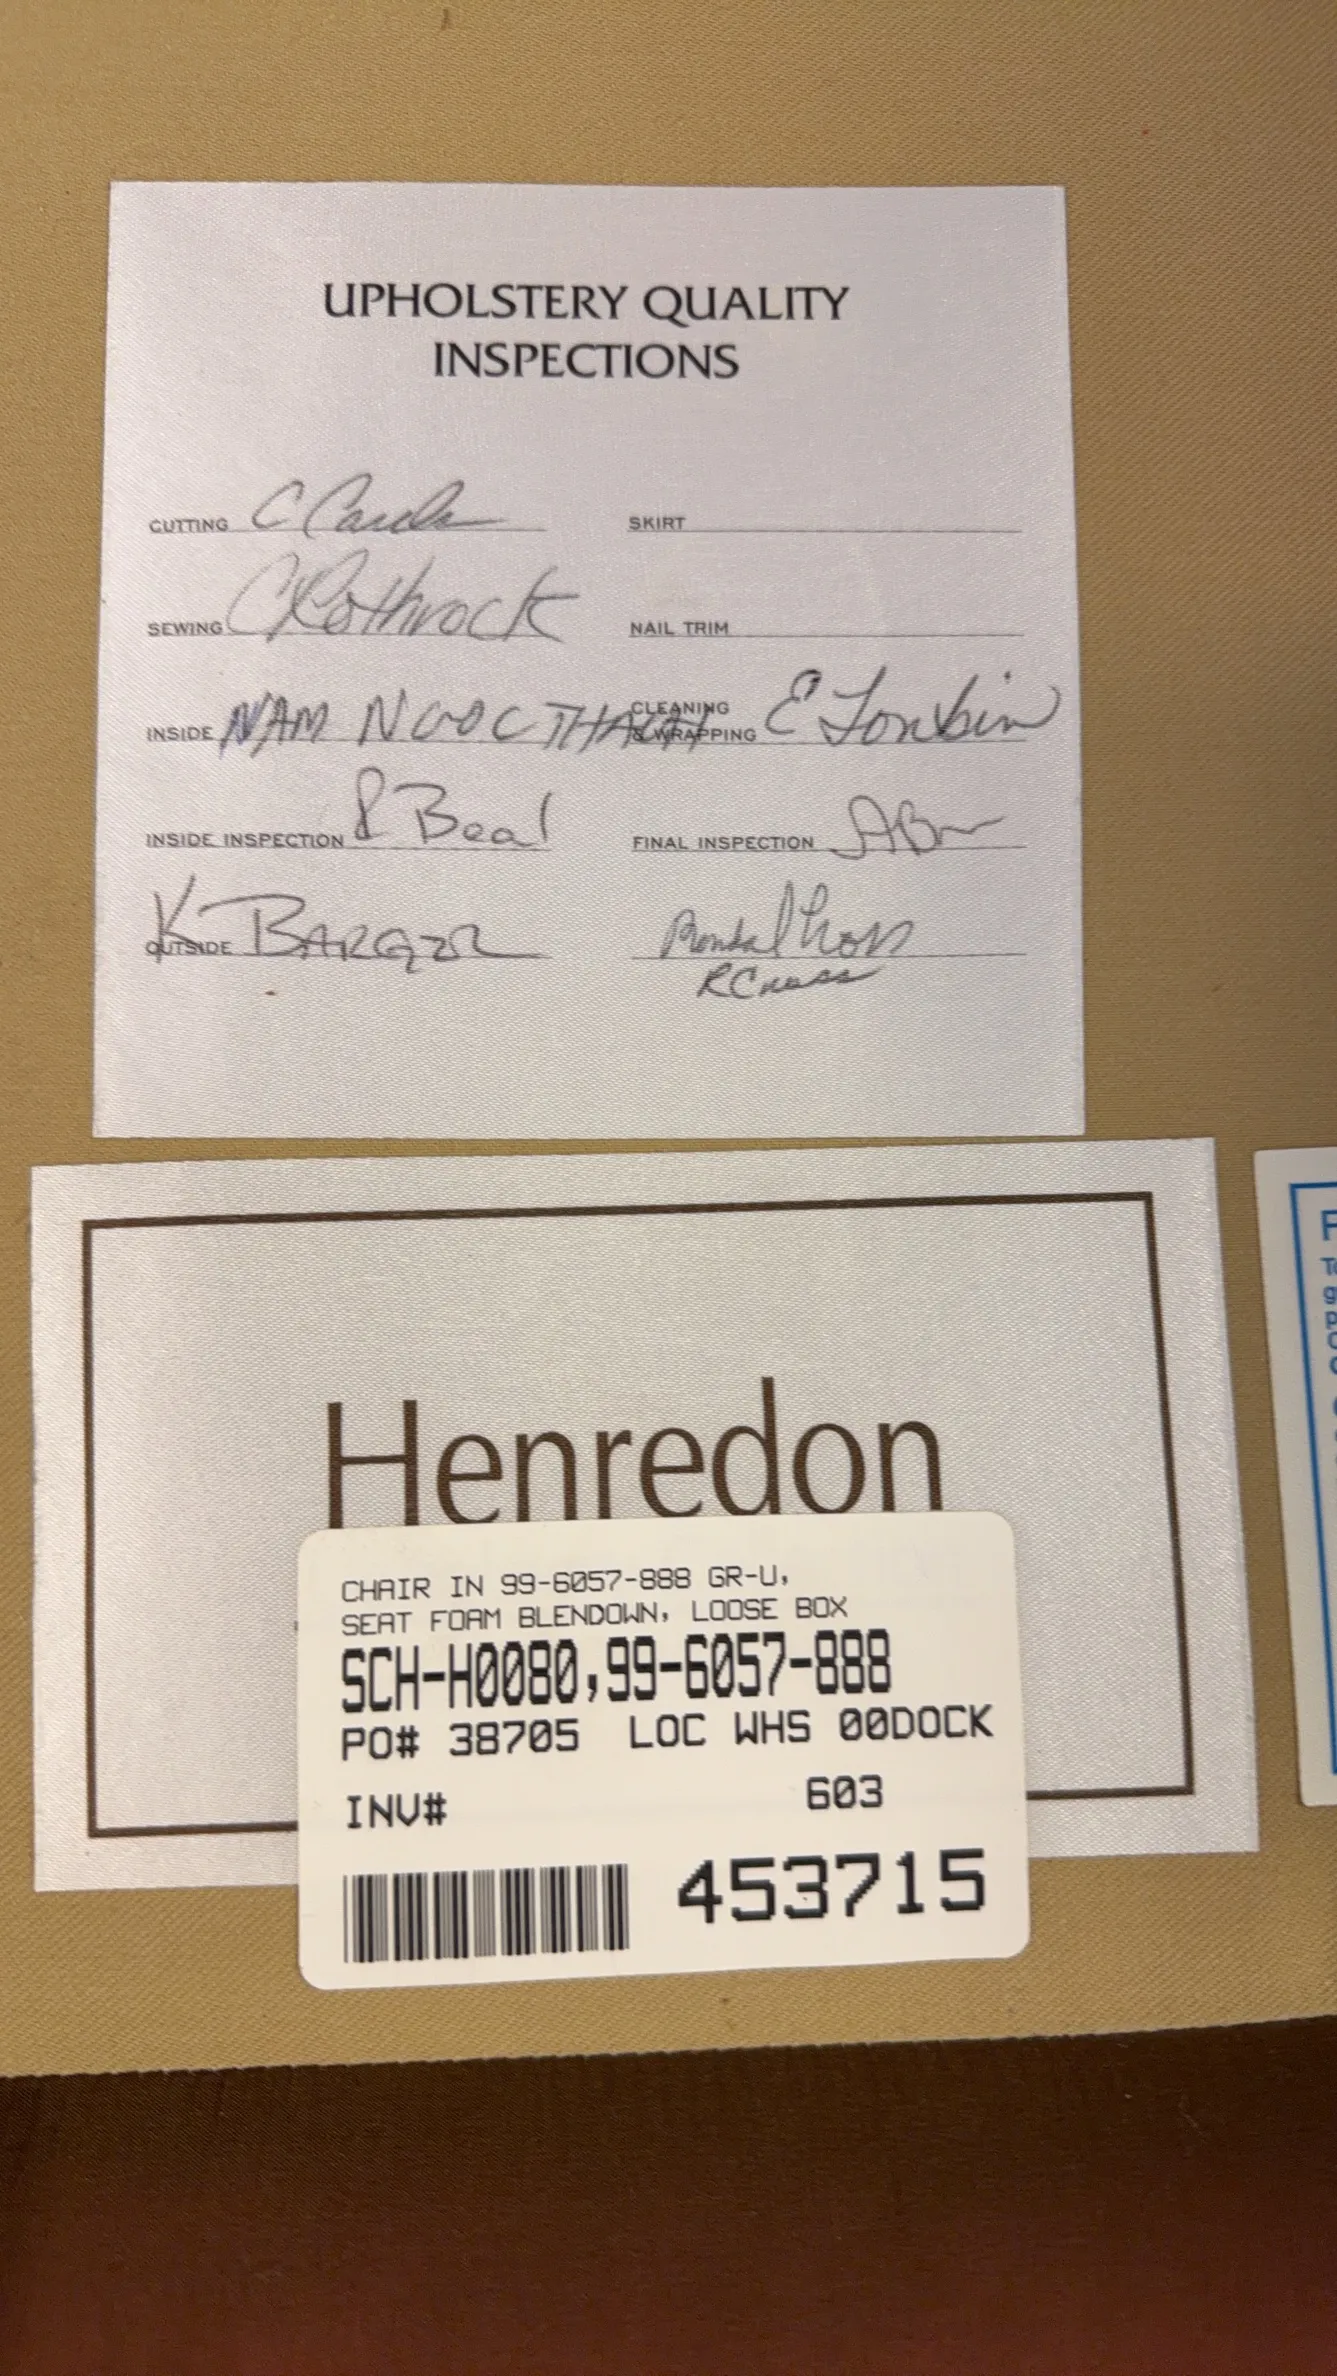 UPHOLSTERY QUALITY
INSPECTIONS
CUTTING C
SKIRT
SEWING C Rothrock
NAIL TRIM
INSIDE NAM NGOC
CLEANING
& WRAPPING E
INSIDE INSPECTION Beal
FINAL INSPECTION
OUTSIDE K BARGER
Henredon
CHAIR IN 99-6057-888 GR-U,
SEAT FOAM BLENDOWN, LOOSE BOX
SCH-H0080,99-6057-888
PO# 38705 LOC WHS 00DOCK
INV# 603
453715